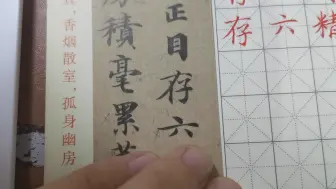 存六精
正目存六
積毫累
，香烟散室，孤身幽房